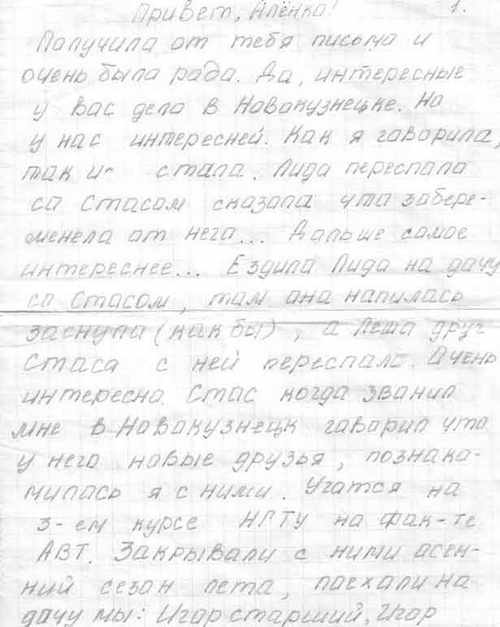 Привет, Алёнка! 1.
Палучила от тебя письма и
очень была рада. Да, интересные
у вас дела в Новакузнецке. На
у нас интересней. Как я гаварила,
так и стала. Лида переспала
са Стасам сказала что забере-
менела ат нега... Дальше самое
интереснее... Ездила Лида на дачу
са Стасом, там она напилась
заснула (как бы), а Леша друг
Стаса с ней переспал. Очень
интересна Стас когда званил
мне в Новакузнецк гаварил что
у него новые друзья, познака-
милась я с ними. Учатся на
3-ем курсе НГТУ на фак-те
АВТ. Закрывали с ними асен-
ний сезон лета, паехали на
дачу мы: Игор старший, Игор